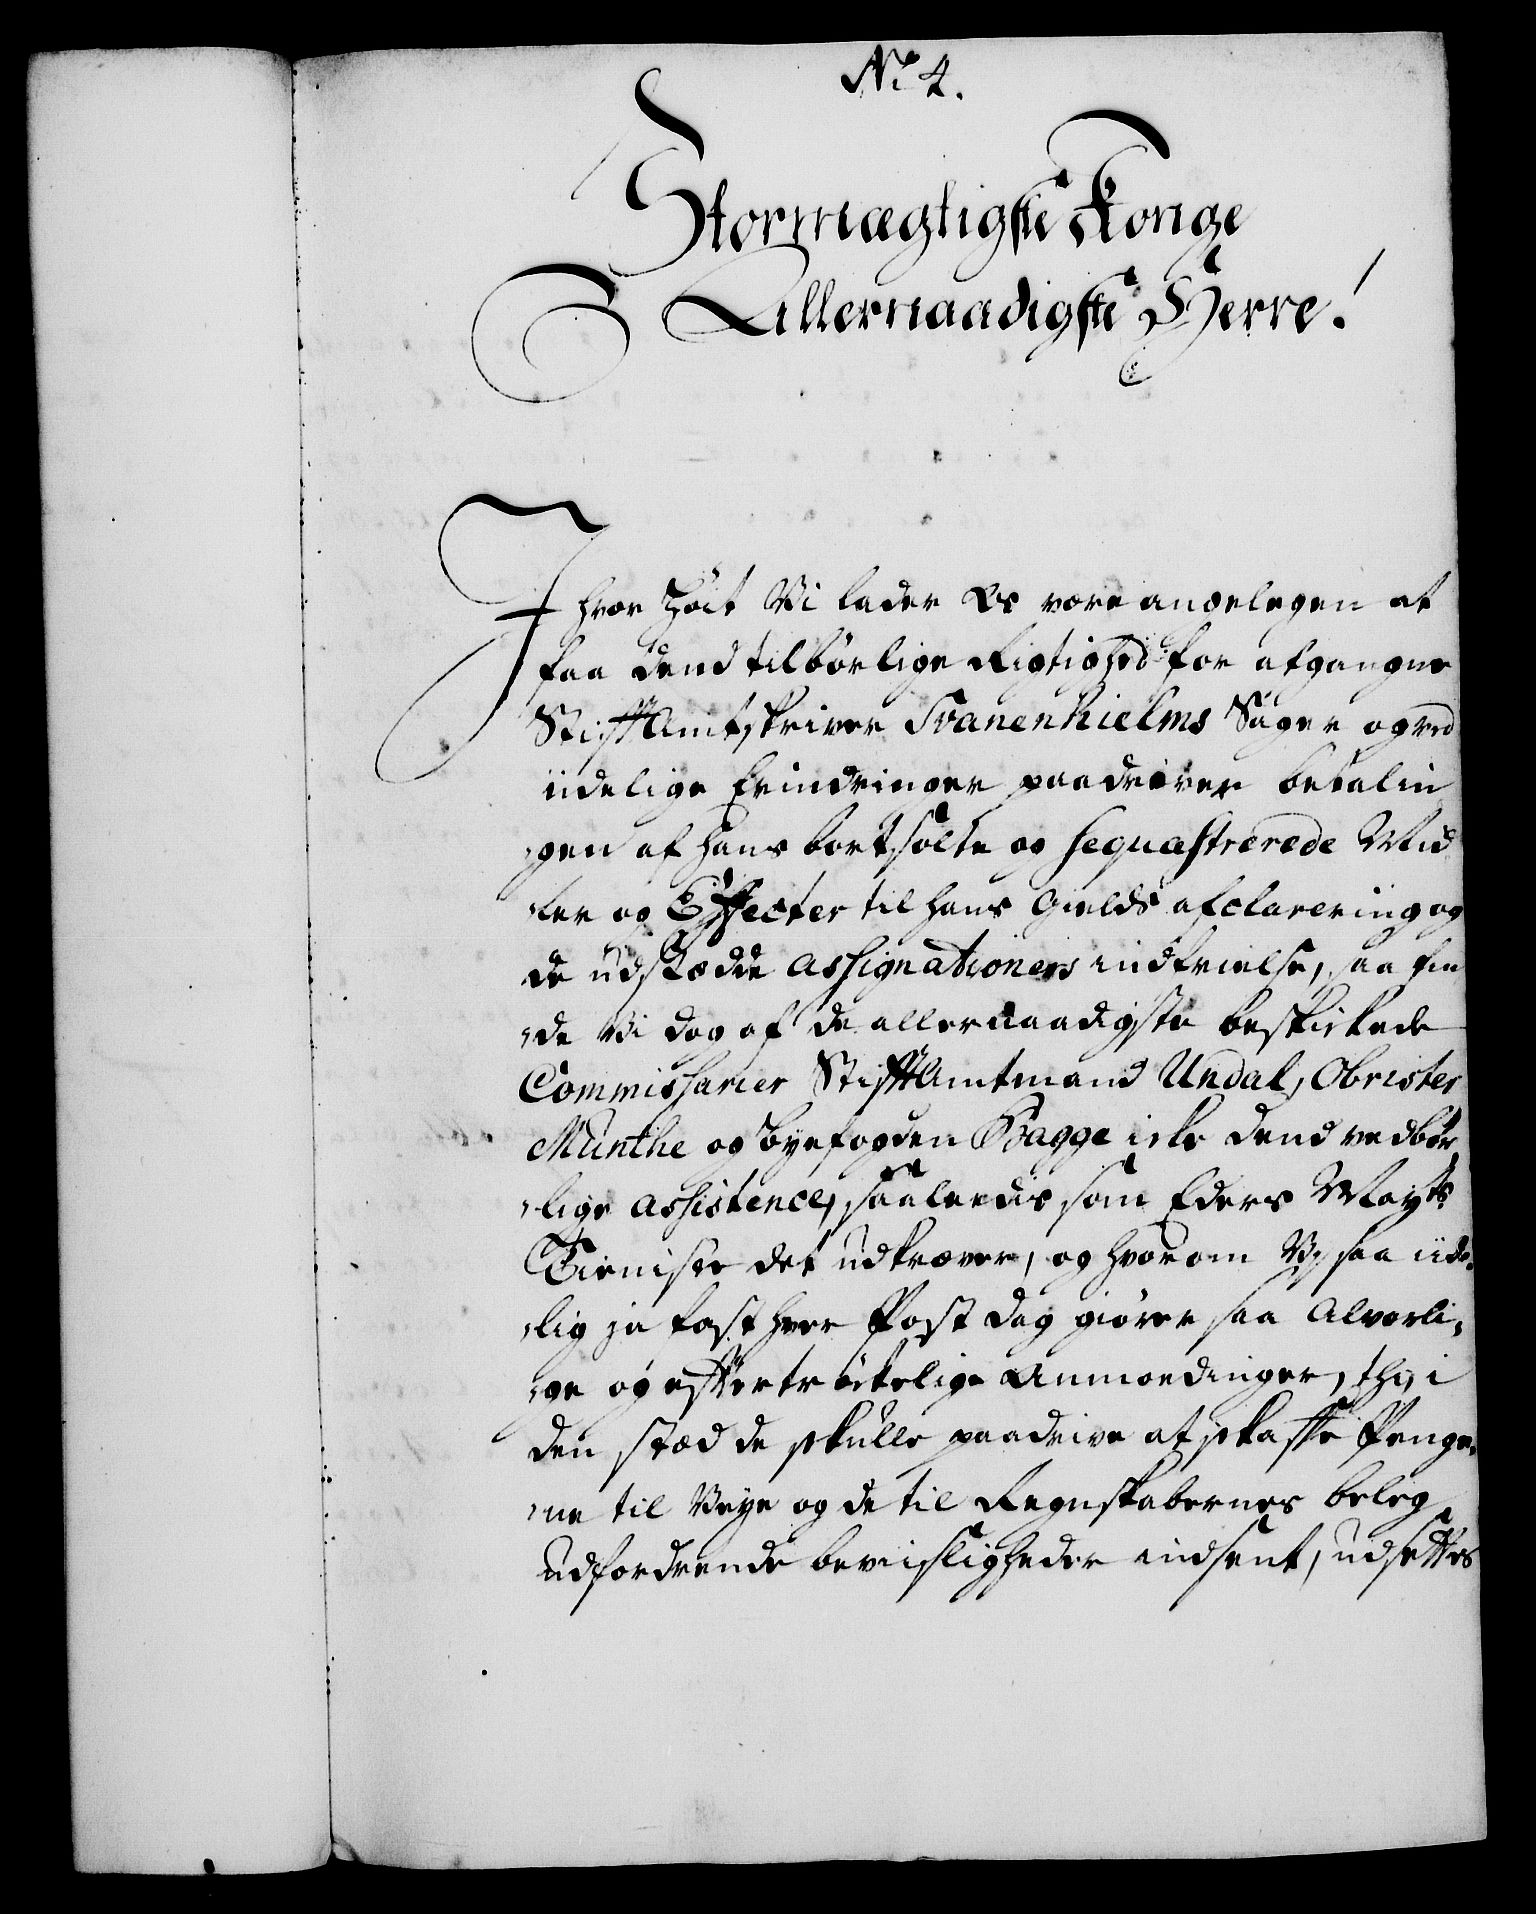 No 4.
Stormægtigste Konge
Allernaadigste Herre!
I hvor høit Vi lader Os være angelegen at
faa dend tilbørlige Rigtighed for afgangne
StifftAmtskriver Svanenhielms Sager og ved
iidelige Erindringer paadriver betalin
„gen af hans bortsolte og seqvæstrerede Mid
„ler og Effecter til hans Gields afclarering og
de udstædde assignationers indfrielse, saa fin
„de Vi dog af de allernaadigste beskikkede
Commissarier StifftAmtmand Undal, Obrister
Munthe og Byefogden Bagge icke dend vedbør
„lige assistence, saaledis som Eders Mayts
Tieniste det udkræver, og hvorom Vj saa iide„
„lig ja fast hver Post dag giører saa Alvorli„
„ge og effterträckelige Anmodninger, thj i
den stæd de skulle paadrive at skaffe Penge„
„ne til Veye og de til Regnskabernes beleg
udfordrende beviisligheder indsent, udsettes